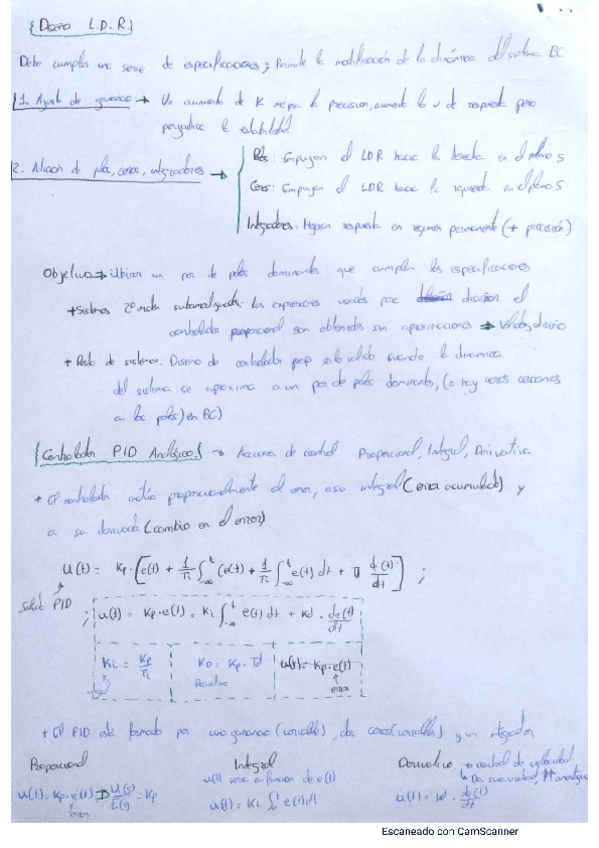 {Diseño L.D.R}
Debe cumplir una serie de especificaciones; Permite la modificación de la dinámica del sistema BC
1. Ajuste de ganancia → Un aumento de K mejora la precision, aumenta la v de respuesta pero
perjudica la estabilidad
2. Adición de polos, ceros, integradores →
Polos: Empujan el LDR hacia la derecha en el plano s
Ceros: Empujan el LDR hacia la izquierda en el plano S
Integradores: Mejoran respuesta en regimen permanente (+ precisión)
Objetivo → Ubicar un par de polos dominantes que cumplan las especificaciones
+ Sistemas 2º orden Las expresiones usadas para diseñar el
controlador proporcional son obtenidas sin aproximaciones → Valido diseño
+ Resto de sistemas. Diseño de controlador prop solo valido cuando la dinamica
del sistema se aproxima a un par de polos dominantes, (o hay ceros cercanos
a los polos) en BC)
{Controlador PID Analógico} → Acciones de control Proporcional, Integral, Derivativa
+ El controlador actúa proporcionalmente al error, a su integral (error acumulado) y
a su derivada (cambio en el error)
u(t) = Kp·[e(t) + 1/Ti ∫ (e(t) + 1/Ti ∫ e(t) dt + Td de(t)/dt] ;
Salida PID
; u(t) = Kp·e(t) + Ki ∫ e(t) dt + Kd · de(t)/dt
Ki = Kp/Ti KD = Kp·Td u(t) = Kp·e(t)
Derivativo error
+ El PID está formado por una ganancia (variable), dos ceros (variables) y un integrador
Proporcional Integral Derivativo → control de velocidad
u(t) varia en funcion de e(t) ↳ Da suavidad, ↑↑ amortigua
u(t) = Kp·e(t) → U(s)/E(s) = Kp u(t) = Ki ∫ e(t)dt u(t) = Kd · de(t)/dt
error
Escaneado con CamScanner